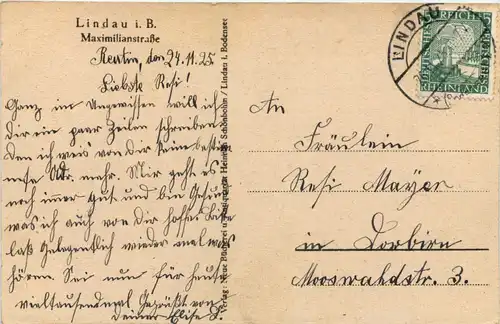 Lindau i. B.
Maximilianstraße
Reutin, den 24.11.25.
Liebste Resi!
Ganz im Ungewissen will ich
dir ein paar Zeilen schreiben.
Den ich weis von dir keine bestim
mte Adr. mehr. Mir geht es
noch immer gut und bin Gesund
was ich auch von dir hoffe. Bitte
laß Gelegentlich wieder mal was
hören. Sei nun für heute
vieltausendmal Gegrüßt von
Deiner Elise S.
Verlag: Neue Bücher u. Heinr. Schönlohn / Lindau i. Bodensee
LINDAU
DEUTSCHES REICH
5
RHEINLAND
An
Fräulein
Resi Mayer
in Dorbirn
Mooswaldstr. 3.